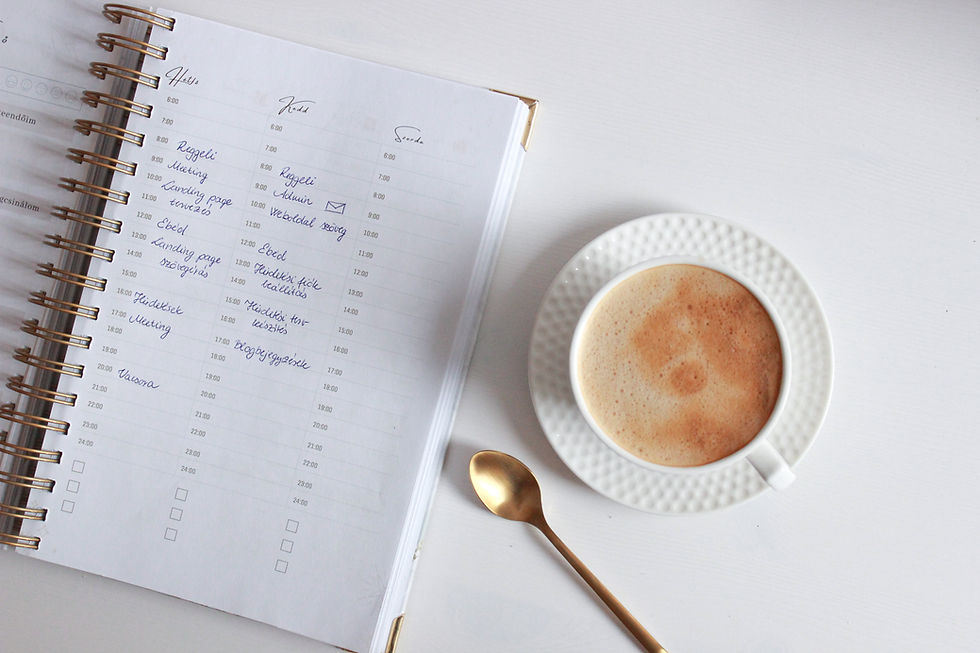 eendőim
gcsinálom
Hétfő
6:00
7:00
8:00 Reggeli
9:00 Meeting
10:00 Landing page
11:00 tervezés
12:00 Ebéd
13:00 Landing page
14:00 szövegírás
15:00
16:00 Hirdetések
17:00 Meeting
18:00
19:00
20:00 Vacsora
21:00
22:00
23:00
24:00
Kedd
6:00
7:00
8:00 Reggeli
9:00 Admin
10:00 Weboldal szöveg
11:00
12:00 Ebéd
13:00 Hirdetési fiók
14:00 beállítás
15:00 Hirdetési terv
16:00 készítés
17:00 blogbejegyzések
18:00
19:00
20:00
21:00
22:00
23:00
24:00
Szerda
6:00
7:00
8:00
9:00
10:00
11:00
12:00
13:00
14:00
15:00
16:00
17:00
18:00
19:00
20:00
21:00
22:00
23:00
24:00